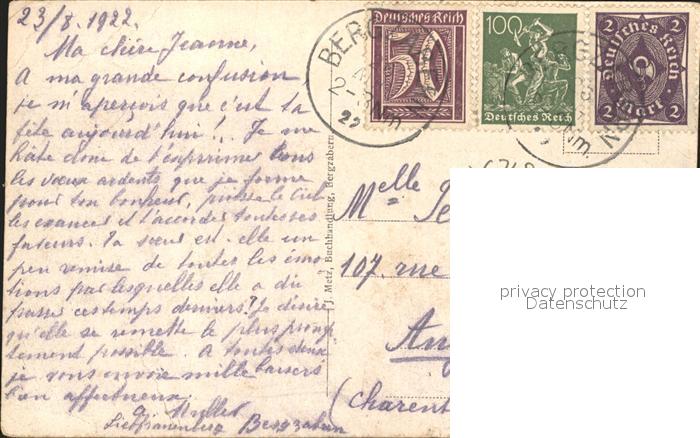 23/8. 1922.
Ma chère Jeanne,
A ma grande confusion
je m'aperçois que c'est ta
fête aujourd'hui! Je me
hâte donc de t'exprimer tous
les vœux ardents que je forme
pour ton bonheur, puisse le Ciel
les exaucer et t'accorder toutes ses
faveurs. Ta sœur est-elle un
peu remise de toutes les émo
tions par lesquelles elle a dû
passer ces temps derniers? Je désire
qu'elle se remette le plus promp
tement possible. A toutes deux
je vous envoie mille baisers
bien affectueux.
a Muller
Liebfrauenberg Bergzabern
J. Metz, Buchhandlung, Bergzabern
Deutsches Reich
50
100
Deutsches Reich
2 2
Deutsches Reich
Mark
2 2
BERG
2-3 Nm
22
Nm
Melle Je
107, rue
Ang
(Charent
privacy protection
Datenschutz